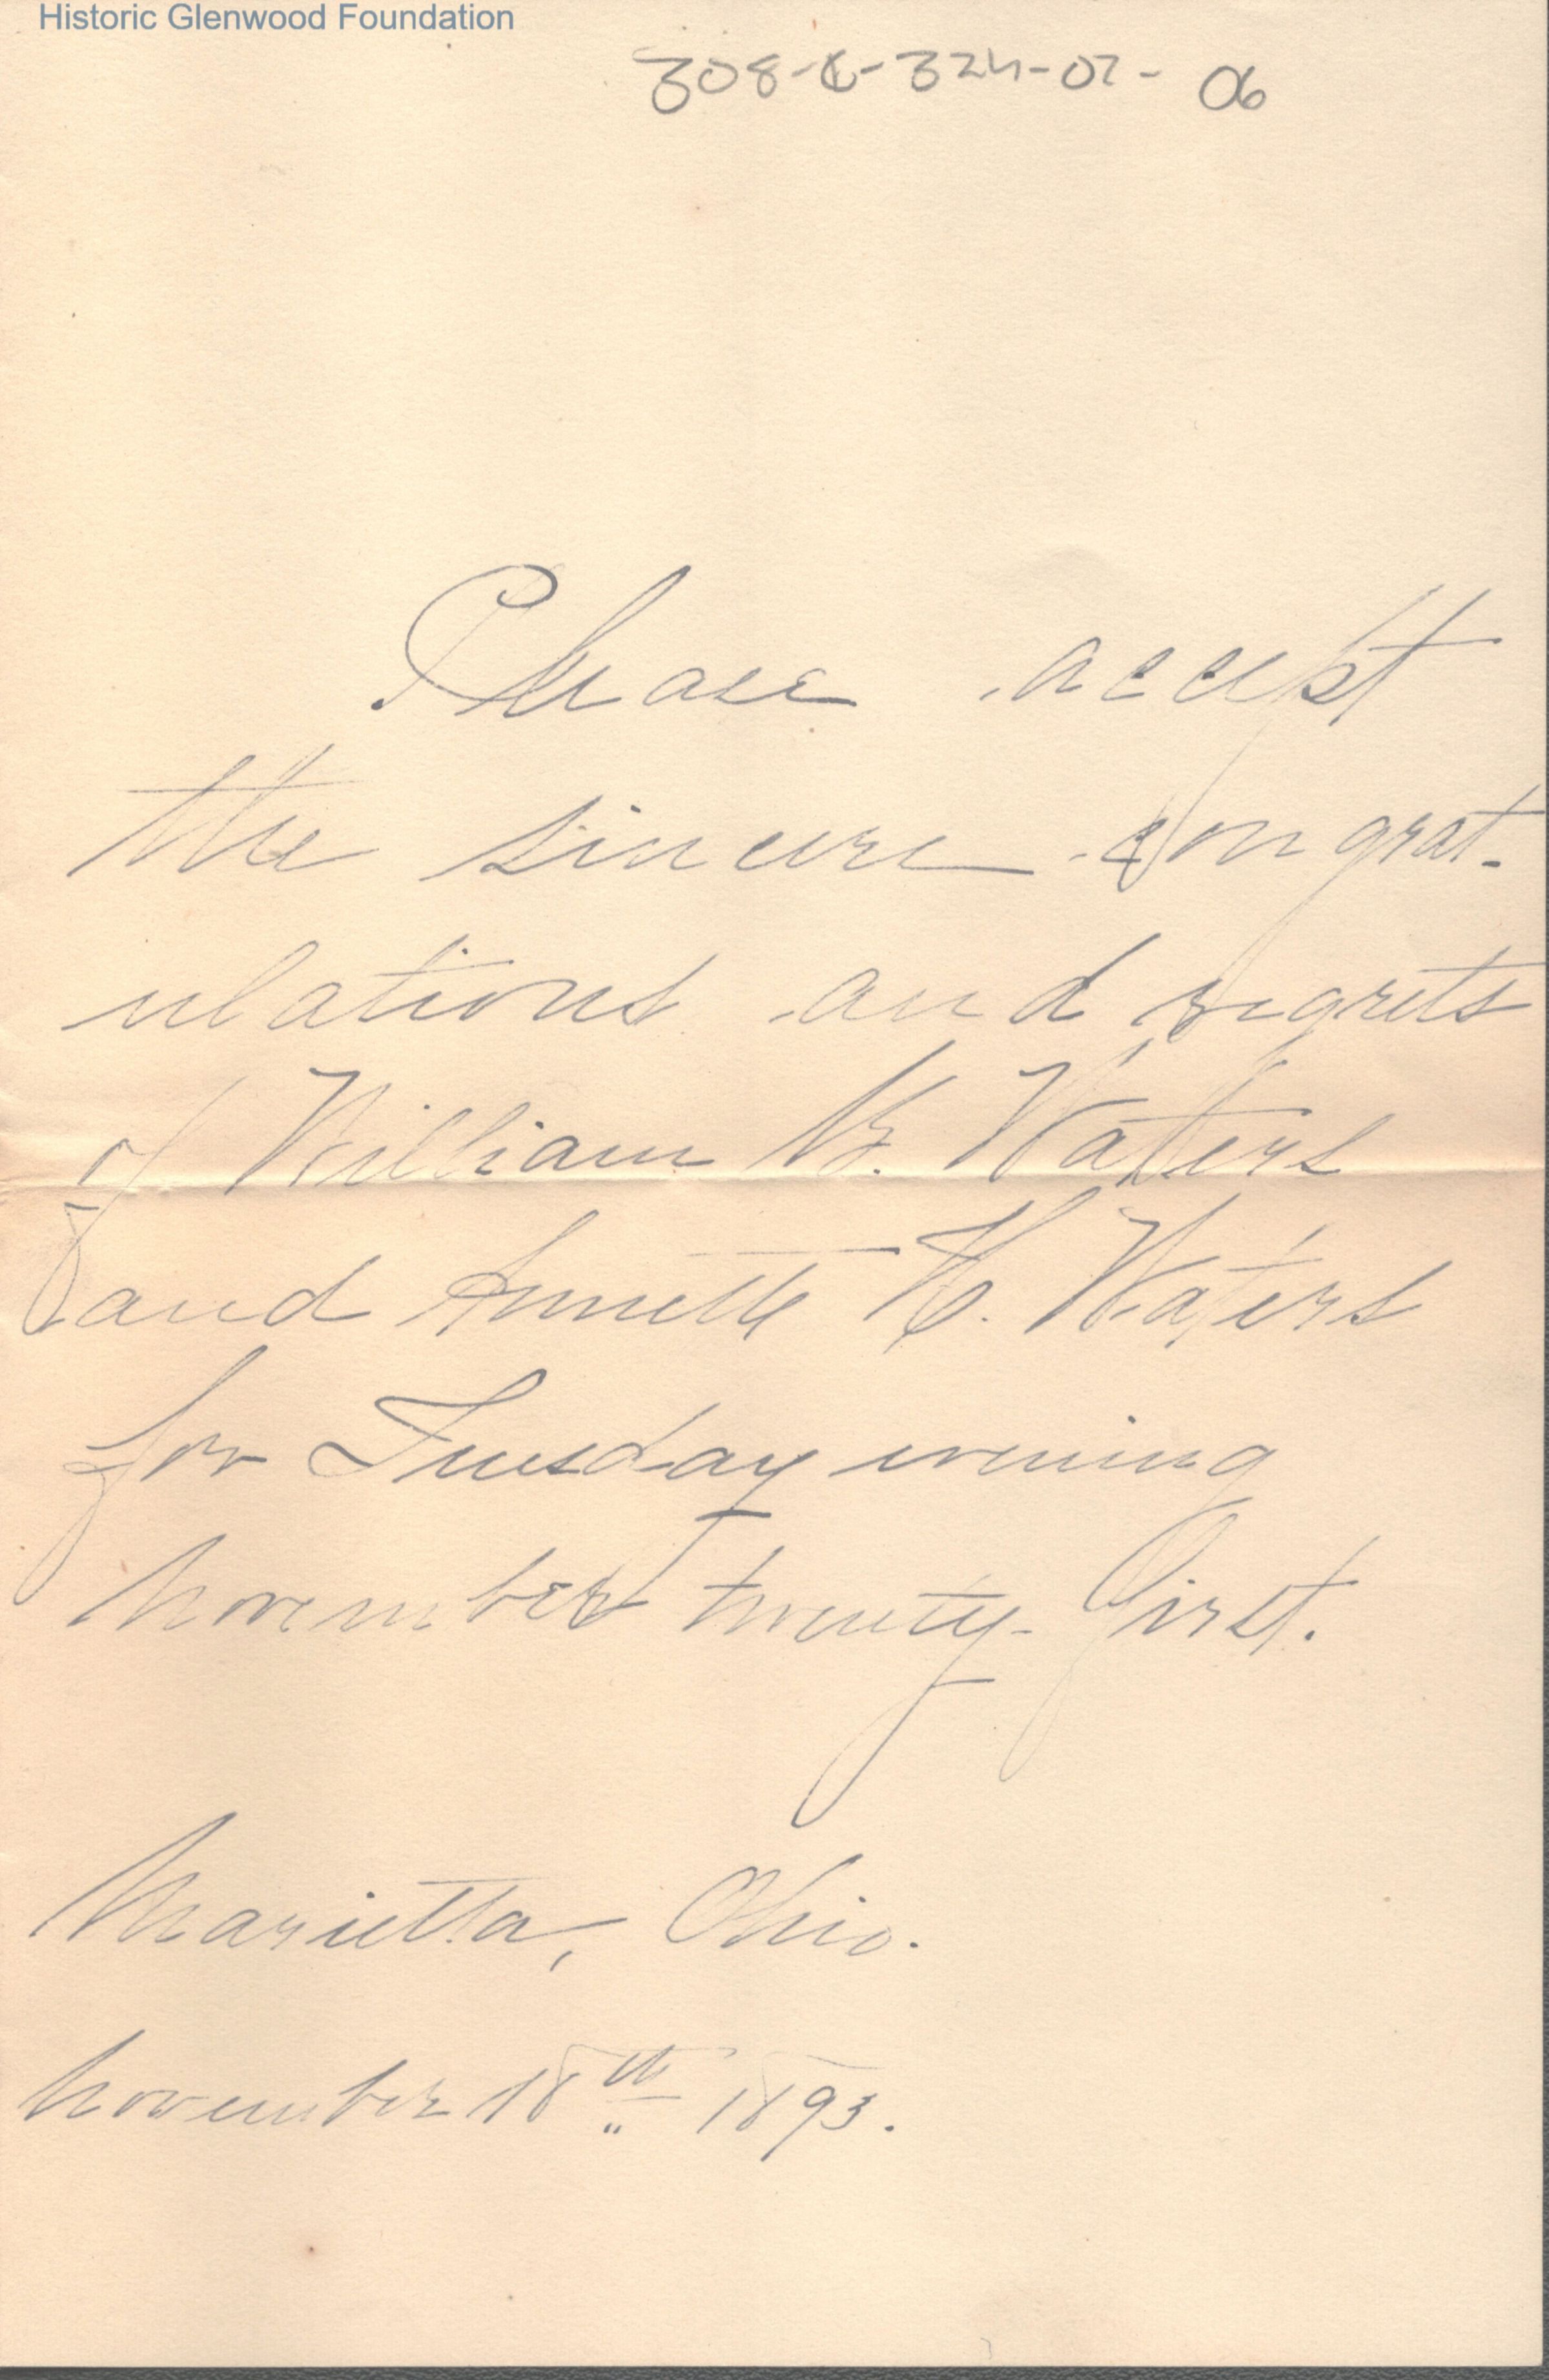 Historic Glenwood Foundation
308-C-324-07-06
Please accept
the sincere congrat-
ulations and regrets
of William Waters
and Annette H. Waters
for Tuesday evening
November twenty-first.
Marietta, Ohio.
November 18th 1893.